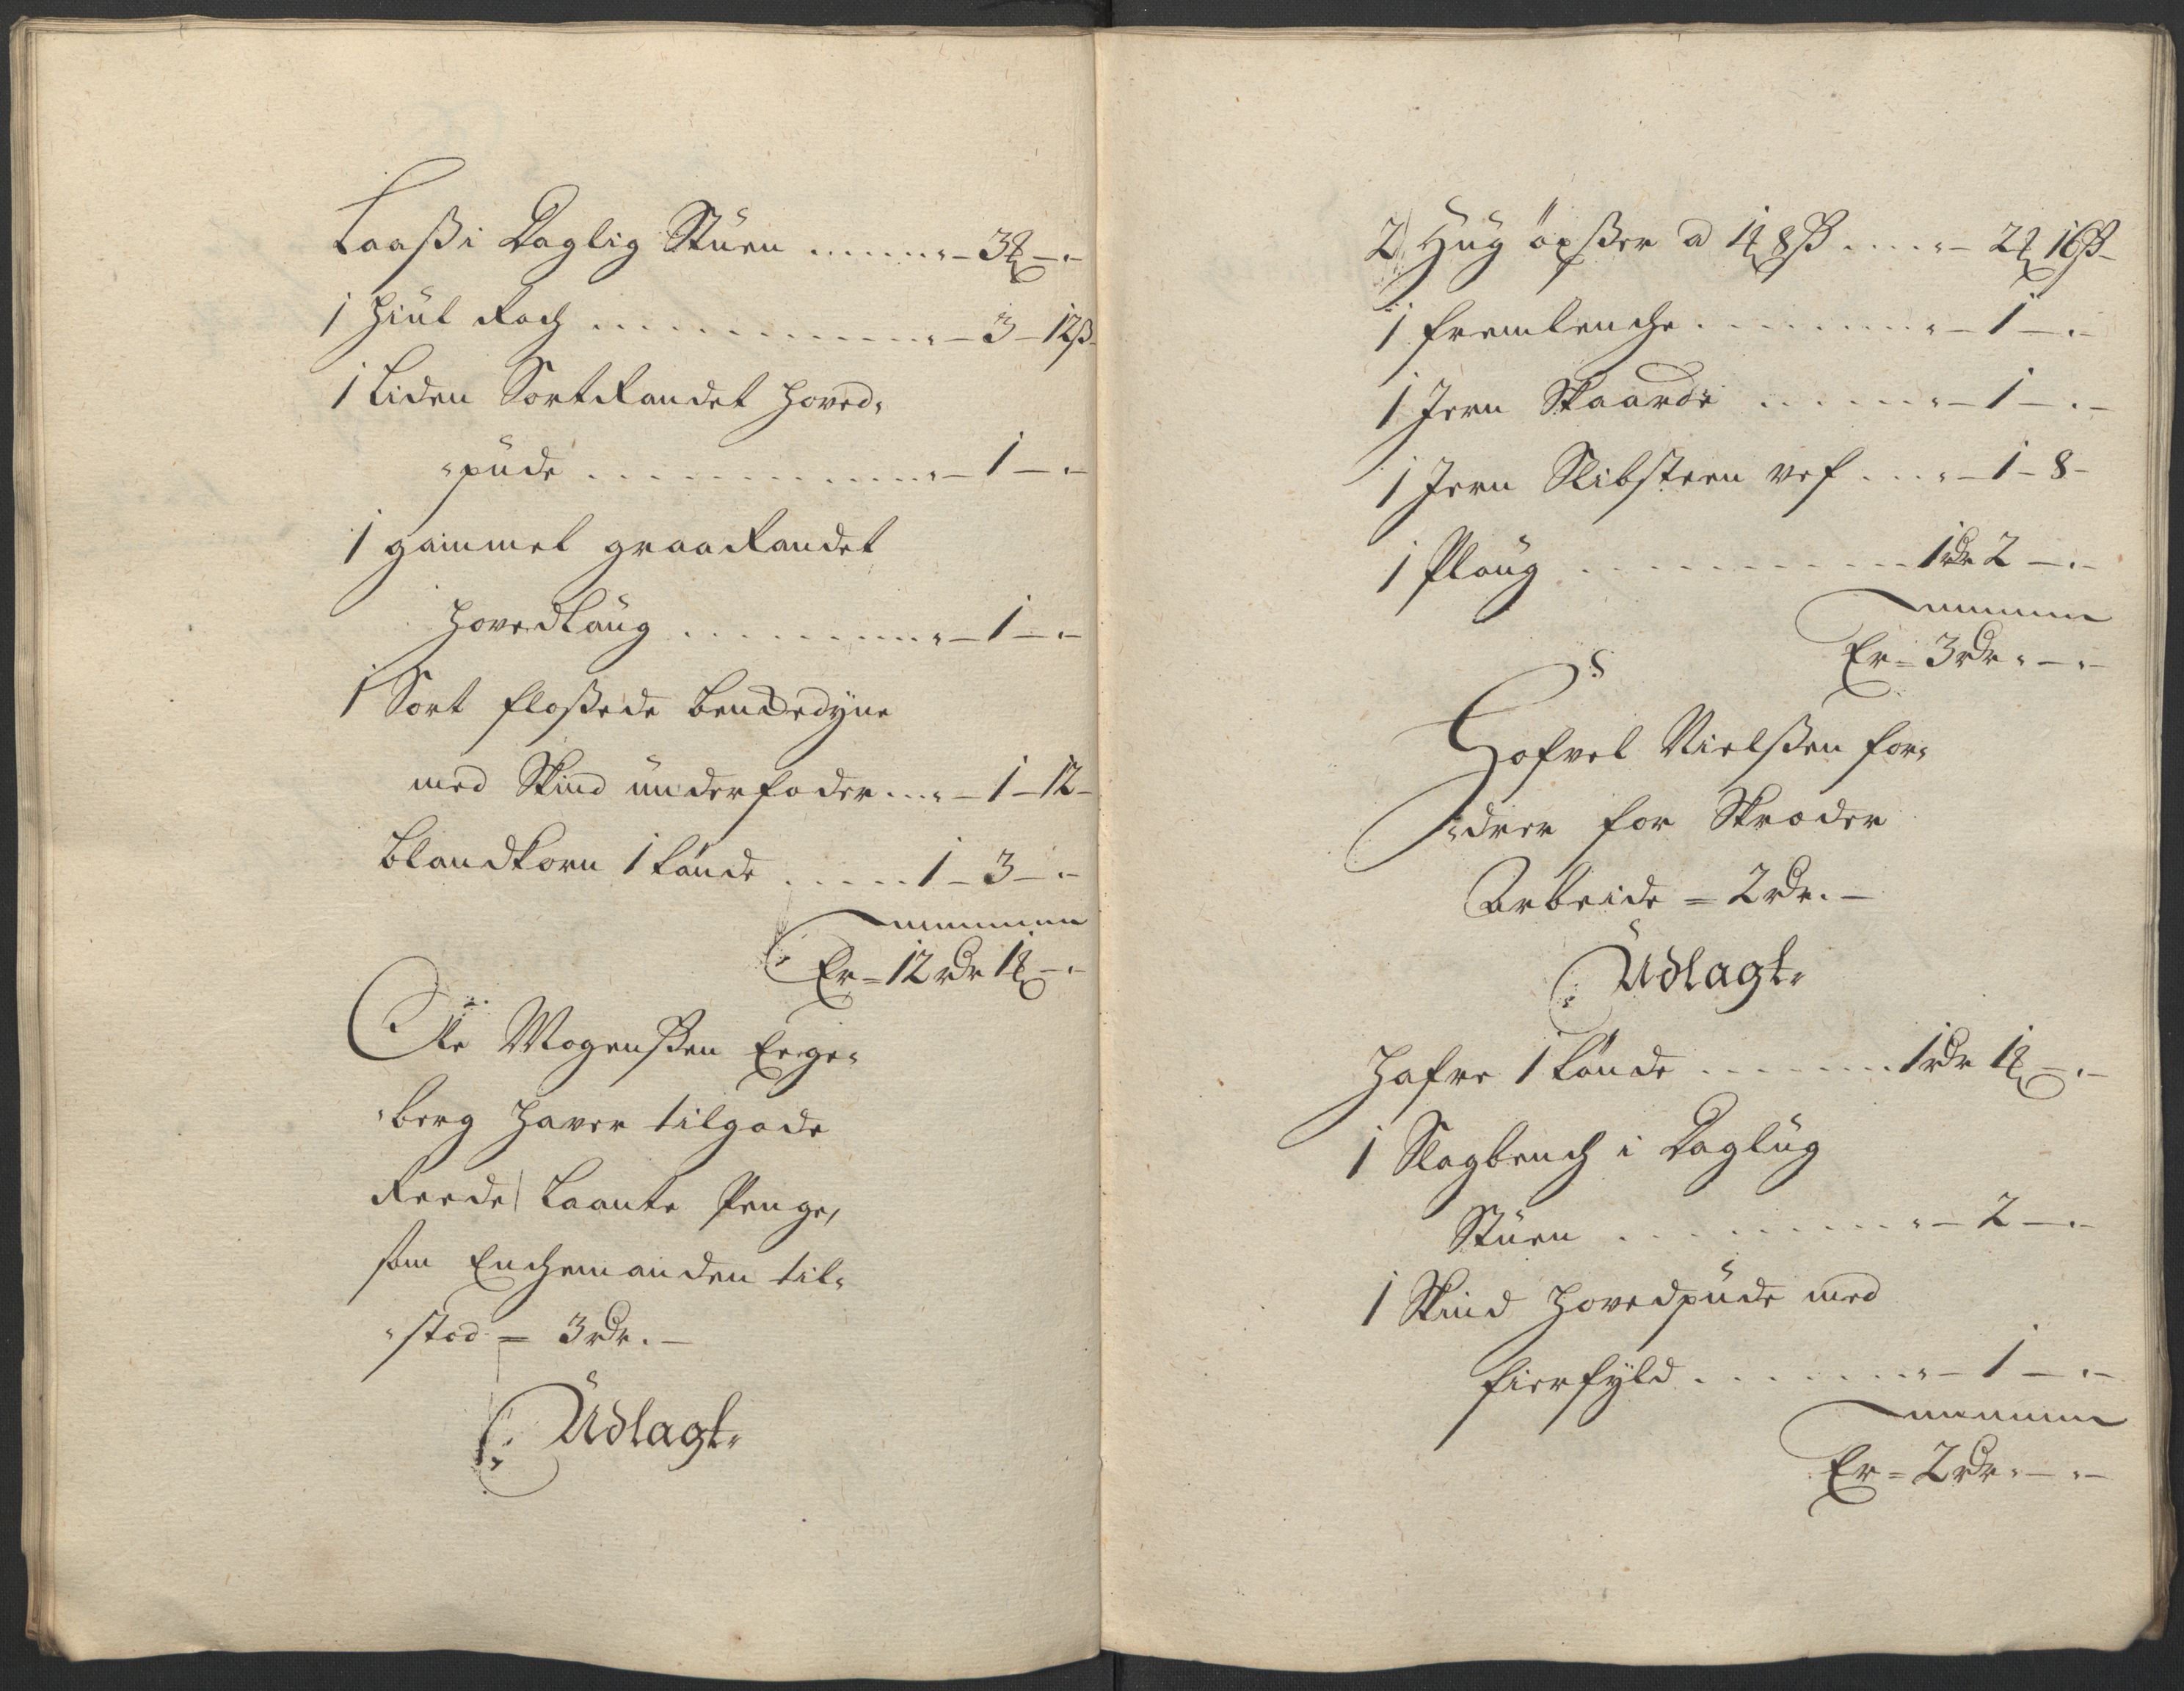 Laaß i Daglig Stuen ......... " - 3 ℔ - " -
1 Hiul Rock ............ " - 3 - 12 ß -
1 Liden Sort Randet Hoved=
=pude ............ " - 1 - " -
1 gammel graa Randet
Hovedlaug .......... " - 1 - " -
1 Sort floßede benckedyne
med Skind underfoder ... " - 1 - 12 -
Blandkorn 1 tønde ...... 1 - 3 - " -
Er = 12 rdr 1 ℔ - " -
Ole Mogenßen Enge=
=berg Haver tilgode
Reede Laante Penge,
som Enchemanden til=
=stod = 3 rdr. -
Udlagt.
2 Hug øxßer a 1 ℔ 8 ß ..... " - 2 ℔ 16 ß -
1 fremlenche ......... " - 1 - " -
1 Jern Skaarde ....... " - 1 - " -
1 Jern Slibsteen vef .... " - 1 - 8 -
1 Ploug ............ 1 rdr 2 - " -
Er = 3 rdr " - " -
Gofvel Nielßen for=
=drer for Skræder
Arbeide = 2 rdr. -
Udlagt.
Hafre 1 tønde ........ 1 rdr 1 ℔ - " -
1 Slagbench i Daglug
Stuen ........... " - 2 - " -
1 Skind Hovedpude med
fierfyld ........ " - 1 - " -
Er = 2 rdr " - " -